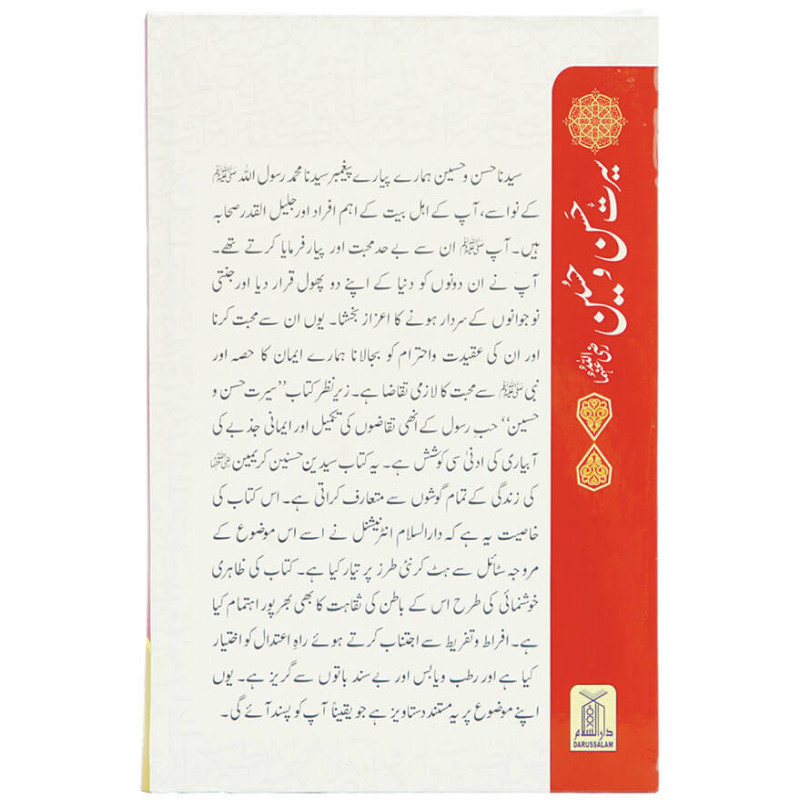 سیدنا حسن و حسین ہمارے پیارے پیغمبر سیدنا محمد رسول اللہ ﷺ
کے نواسے، آپ کے اہل بیت کے اہم افراد اور جلیل القدر صحابہ
ہیں۔ آپ ﷺ ان سے بے حد محبت اور پیار فرمایا کرتے تھے۔
آپ نے ان دونوں کو دنیا کے اپنے دو پھول قرار دیا اور جنتی
نوجوانوں کے سردار ہونے کا اعزاز بخشا۔ یوں ان سے محبت کرنا
اور ان کی عقیدت واحترام کو بجالانا ہمارے ایمان کا حصہ اور
نبی ﷺ سے محبت کا لازمی تقاضا ہے۔ زیر نظر کتاب ”سیرت حسن و
حسین“ حب رسول کے انھی تقاضوں کی تکمیل اور ایمانی جذبے کی
آبیاری کی ادنیٰ سی کوشش ہے۔ یہ کتاب سیدین حسنین کریمین رضی اللہ عنہما
کی زندگی کے تمام گوشوں سے متعارف کراتی ہے۔ اس کتاب کی
خاصیت یہ ہے کہ دارالسلام انٹرنیشنل نے اسے اس موضوع کے
مروجہ سٹائل سے ہٹ کر نئی طرز پر تیار کیا ہے۔ کتاب کی ظاہری
خوشنمائی کی طرح اس کے باطن کی ثقاہت کا بھی بھرپور اہتمام کیا
ہے۔ افراط وتفریط سے اجتناب کرتے ہوئے راہِ اعتدال کو اختیار
کیا ہے اور رطب ویابس اور بے سند باتوں سے گریز ہے۔ یوں
اپنے موضوع پر یہ مستند دستاویز ہے جو یقیناً آپ کو پسند آئے گی۔
سیرت حسن و حسین رضی اللہ عنہما
دارالسلام
DARUSSALAM